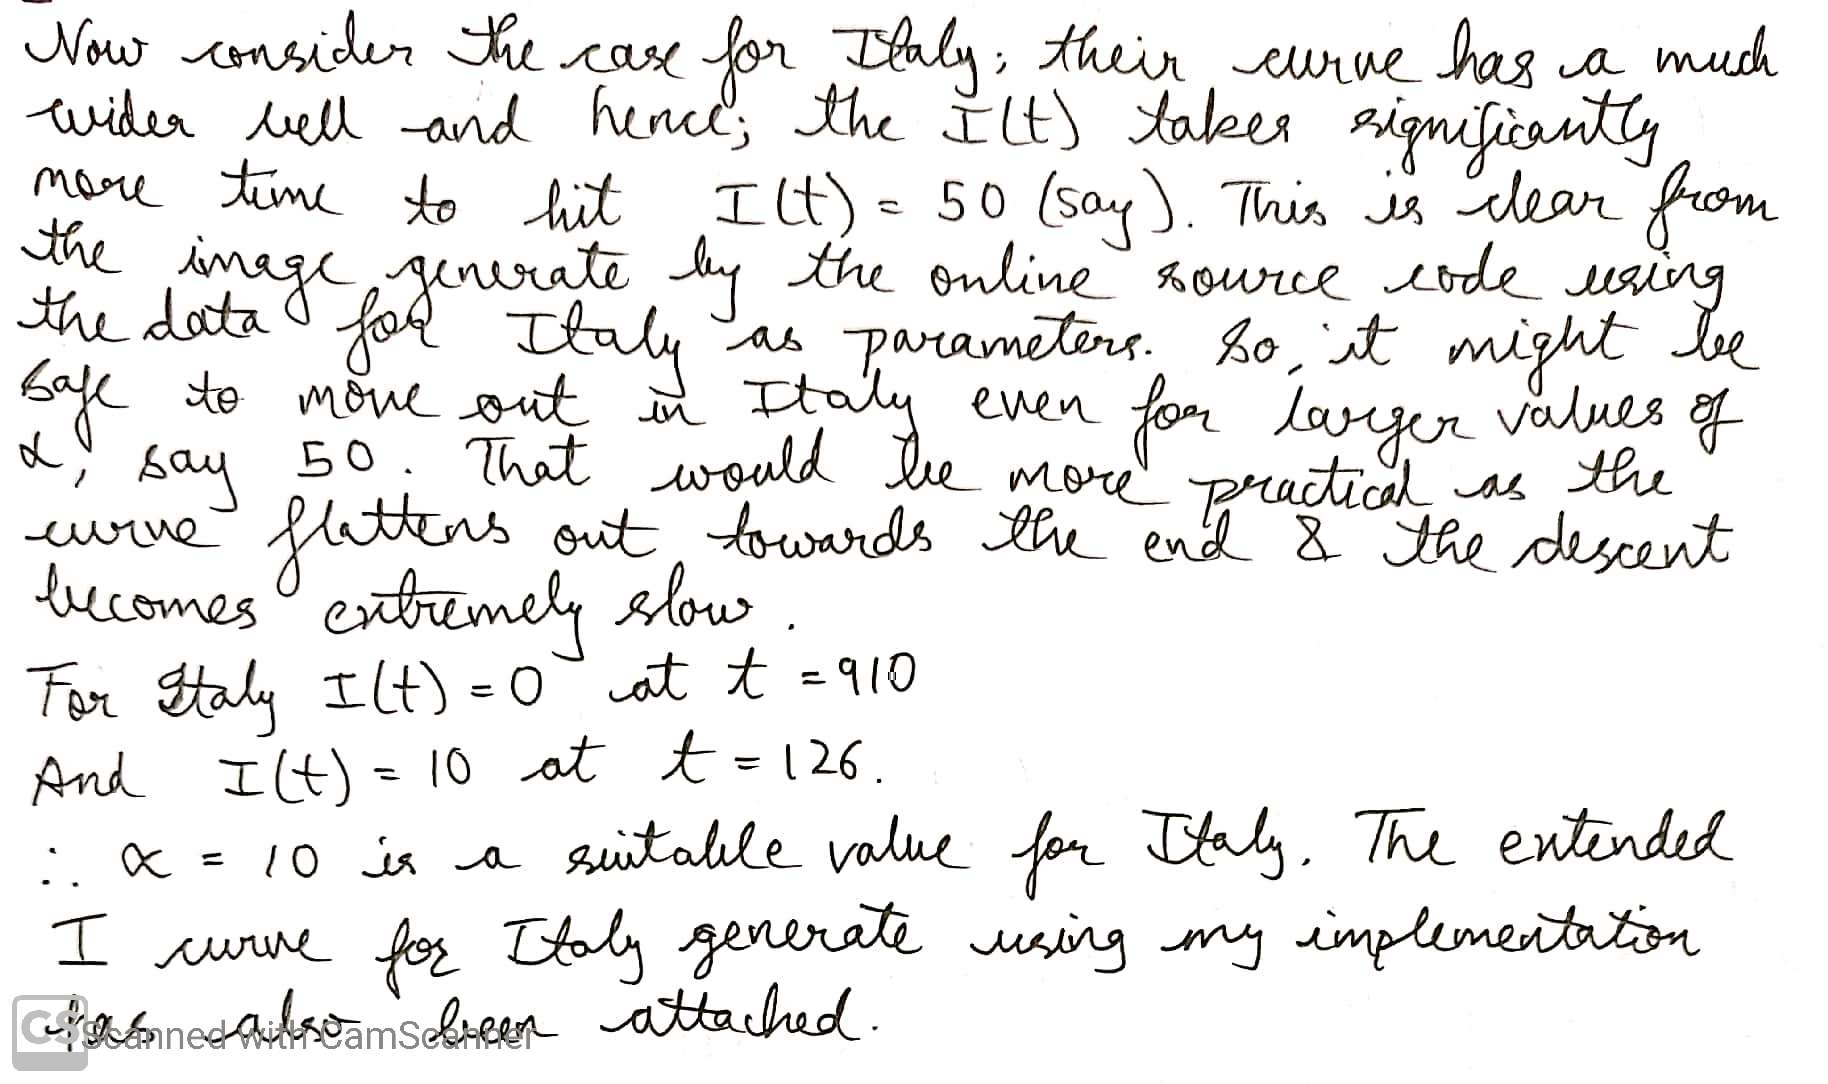 Now consider the case for Italy; their curve has a much
wider bell and hence; the I(t) takes significantly
more time to hit I(t) = 50 (say). This is clear from
the image generate by the online source code using
the data for Italy as parameters. So, it might be
safe to move out in Italy even for larger values of
α, say 50. That would be more practical as the
curve flattens out towards the end & the descent
becomes extremely slow.
For Italy I(t) = 0 at t = 910
And I(t) = 10 at t = 126.
∴ α = 10 is a suitable value for Italy. The extended
I curve for Italy generate using my implementation
has also been attached.
CS Scanned with CamScanner